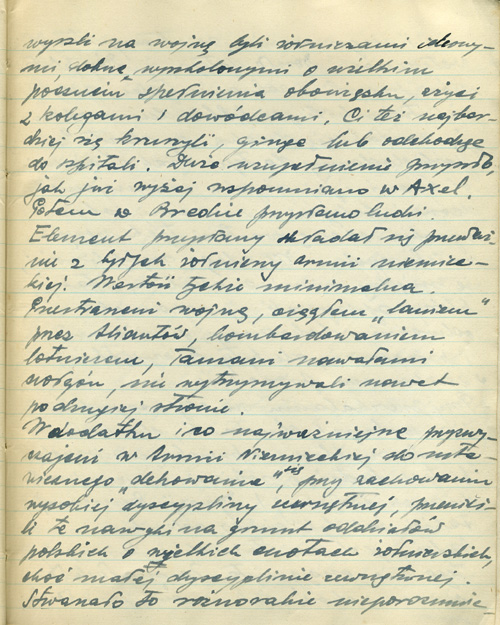 wyszli na wojnę byli żołnierzami ideowy-
mi, dobrze wyszkolonymi o wielkim
poczuciu spełnienia obowiązku, zżyci
z kolegami i dowódcami. Ci też najbar-
dziej się kruszyli, ginąc lub odchodząc
do szpitali. Duże uzupełnienie przyszło,
jak już wyżej wspomniano w Axel.
Potem w Bredzie przysłano ludzi.
Element przysłany składał się przeważ-
nie z byłych żołnierzy armii niemiec-
kiej. Wartość tychże minimalna.
Przestraszeni wojną, ciągłem "laniem"
przez Aliantów, bombardowaniem
lotniczem, łamani nawałami
wrogów, nie wytrzymywali nawet
po drugiej stronie.
W dodatku i co najważniejsze przyzwy-
czajeni w Armii Niemieckiej do usta-
wicznego "dekowania" się, przy zachowaniu
wysokiej dyscypliny zewnętrznej, przenieśli
te nawyki na grunt oddziałów
polskich o wielkich cnotach żołnierskich,
choć małej dyscyplinie zewnętrznej.
Stwarzało to różnorakie nieporozumie-